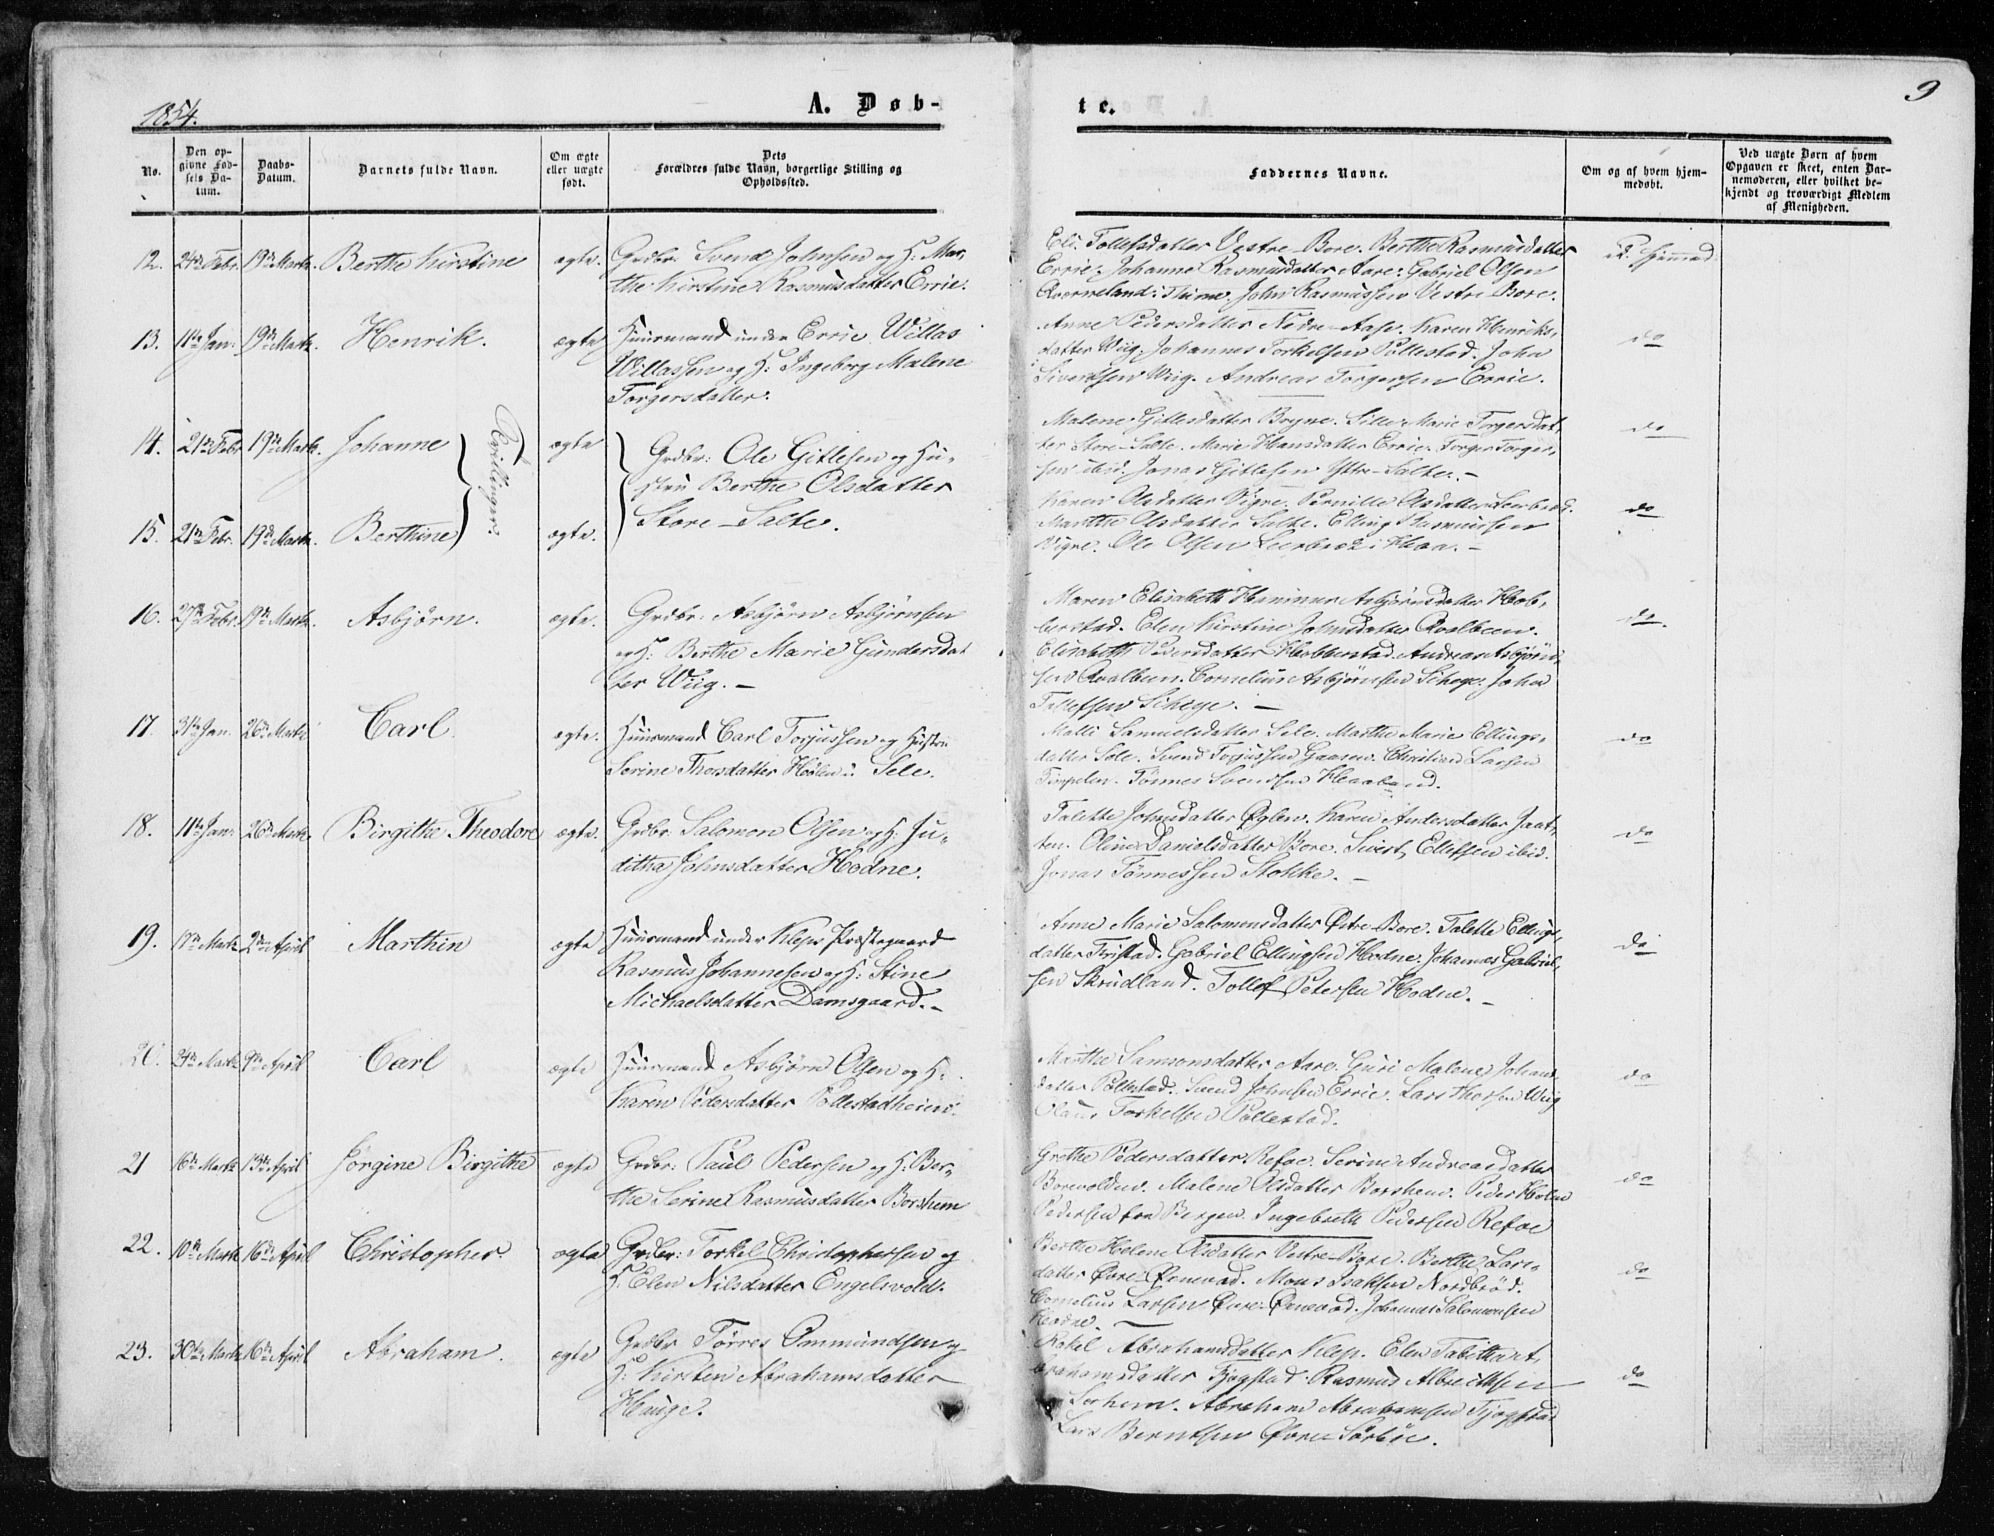 1854.
A. Døb-
te.
9
No.
Den op-
givne Fød-
sels Da-
tum.
Daabs-
Datum.
Barnets fulde Navn.
Om ægte
eller uægte
født.
Dets
Forældres fulde Navn, borgerlige Stilling og
Opholdssted.
Faddernes Navne.
Om og af hvem hjem-
medøbt.
Ved uægte Børn af hvem
Opgaven er skeet, enten Bar-
nemoderen, eller hvilket be-
kjendt og troværdigt Medlem
af Menigheden.
12. 24de Febr. 19de Marts. Berthe Kirstine ægte. Grdbr. Svend Johnsen og H: Mar,
the Kirstine Rasmusdatter Errie.
Eli Tollefsdatter Vestre-Bore. Berthe Rasmusdatter
Errie. Johanne Rasmusdatter Aare. Gabriel Olsen
Qverneland i Thime. John Rasmussen Vestre Bore.
R. Hjemmed
13. 11te Jan: 19de Marts. Henrik. ægte Huusmand under Errie Willas
Willassen og H: Ingeborg Malene
Torgersdatter.
Anne Pedersdatter Nedre-Aase. Karen Henriks,
datter Wiig. Johannes Torkelsen Pollestad. John
Sivertsen Wiig. Andreas Torgersen Errie.
do
14. 21de Febr 19de Marts. Johanne ægte
Tvillinger.
Grdbr: Ole Gitlesen og Hu-
stru Berthe Olsdatter
Store-Salte.
Malene Gitlesdatter Bryne. Sille Marie Torgersdat,
ter Store-Salte. Marie Hansdatter Errie. Torger Torger,
sen ibid. Jonas Gitlesen Ytre-Salte.-
do
15. 21de Febr. 19de Marts. Berthine ægte.
Karen Olsdatter Vigre. Pernille Olsdatter Leerbræk.
Marthe Olsdatter Salte. Elling Rasmussen
Vigre. Ole Olsen Leerbræk i Haa.-
do
16. 27de Febr. 19de Marts. Asbjørn. ægte. Grdbr: Asbjørn Asbjørnsen
og H: Berthe Marie Gundersdat
ter Wiig.-
Maren Elisabeth Asbjørnsdatter Hob,
berstad. Elen Kirstine Johnsdatter Qvalbeen.
Elisabeth Pedersdatter Hobberstad. Andreas Asbjørn,
sen Qvalbeen. Cornelius Asbjørnsen Scheye. John
Tollefsen Scheye.-
do.
17. 31te Jan. 26de Marts Carl. ægte. Huusmand Carl Torjussen og Hustru
Serine Thorsdatter Hølen u. Sele.
Malli Samuelsdatter Sele. Marthe Marie Ellings,
datter Sole. Svend Torjussen Gaasen. Christian Larsen
Tønnes Svendsen Haaland.
do
18. 11te Jan: 26de Marts. Birgithe Theodore ægte. Grdbr. Salomon Olsen og H: Ju,
ditha Johnsdatter Hodne.
Talette Johnsdatter Øglen. Karen Andersdatter Jaat,
ten. Oline Danielsdatter Bore. Sivert Ellefsen ibid.
Jonas Tønnessen Stokke.-
do
19. 17de Marts 2den April Marthin ægte Huusmand under Kleps Præstegaard
Rasmus Johannesen og H: Stine
Michaelsdatter Damsgaard.-
Anne Marie Salomonsdatter Østre-Bore. Talette Ellings,
datter Friestad. Gabriel Ellingsen Hodne. Johannes Gabriel,
sen Skrudland. Tollef Petersen Hodne.-
do
20. 24de Marts 9de April Carl ægte Huusmand Asbjørn Olsen og H:
Karen Pedersdatter Pollestadheien.
Marthe Samsonsdatter Aare. Guri Malene Johans
datter Pollestad. Svend Johnsen Errie. Lars Thorsen Wiig
Olaus Torkelsen Pollestad.
do
21 16de Marts 13de April Jørgine Birgithe ægte Grdbr: Paul Pedersen og H: Ber-
the Serine Rasmusdatter Borshem
Grethe Pedersdatter Refoe. Serine Andreasdatter
Borevolden. Malene Olsdatter Borshem. Peder Holm
Pedersen fra Bergen. Ingebreth Pedersen Refoe
do
22. 10de Marts 16de April Christopher. ægte Grdbr: Torkel Christophersen og
H: Elen Nilsdatter Engelsvold.
Berthe Helene Olsdatter Vestre-Bore. Berthe Lars-
datter Øvre-Øxnevad. Mons Isaksen Nordbrød.
Cornelius Larsen Øvre-Øxnevad. Johannes Salomonsen
Hodne.
do
23. 30te Marts 16de April Abraham. ægte Grdbr Tørres Ommundsen og
H: Kirsten Abrahamsdatter
Hauge.
Rakel Abrahamsdatter Klep. Elen Tabitha A,
brahamsdatter Tjøgstad. Rasmus Albrethsen
Sørhem. Abraham Abrahamsen Tjøgstad
Lars Berntsen Øvre-Sørbøe.
do